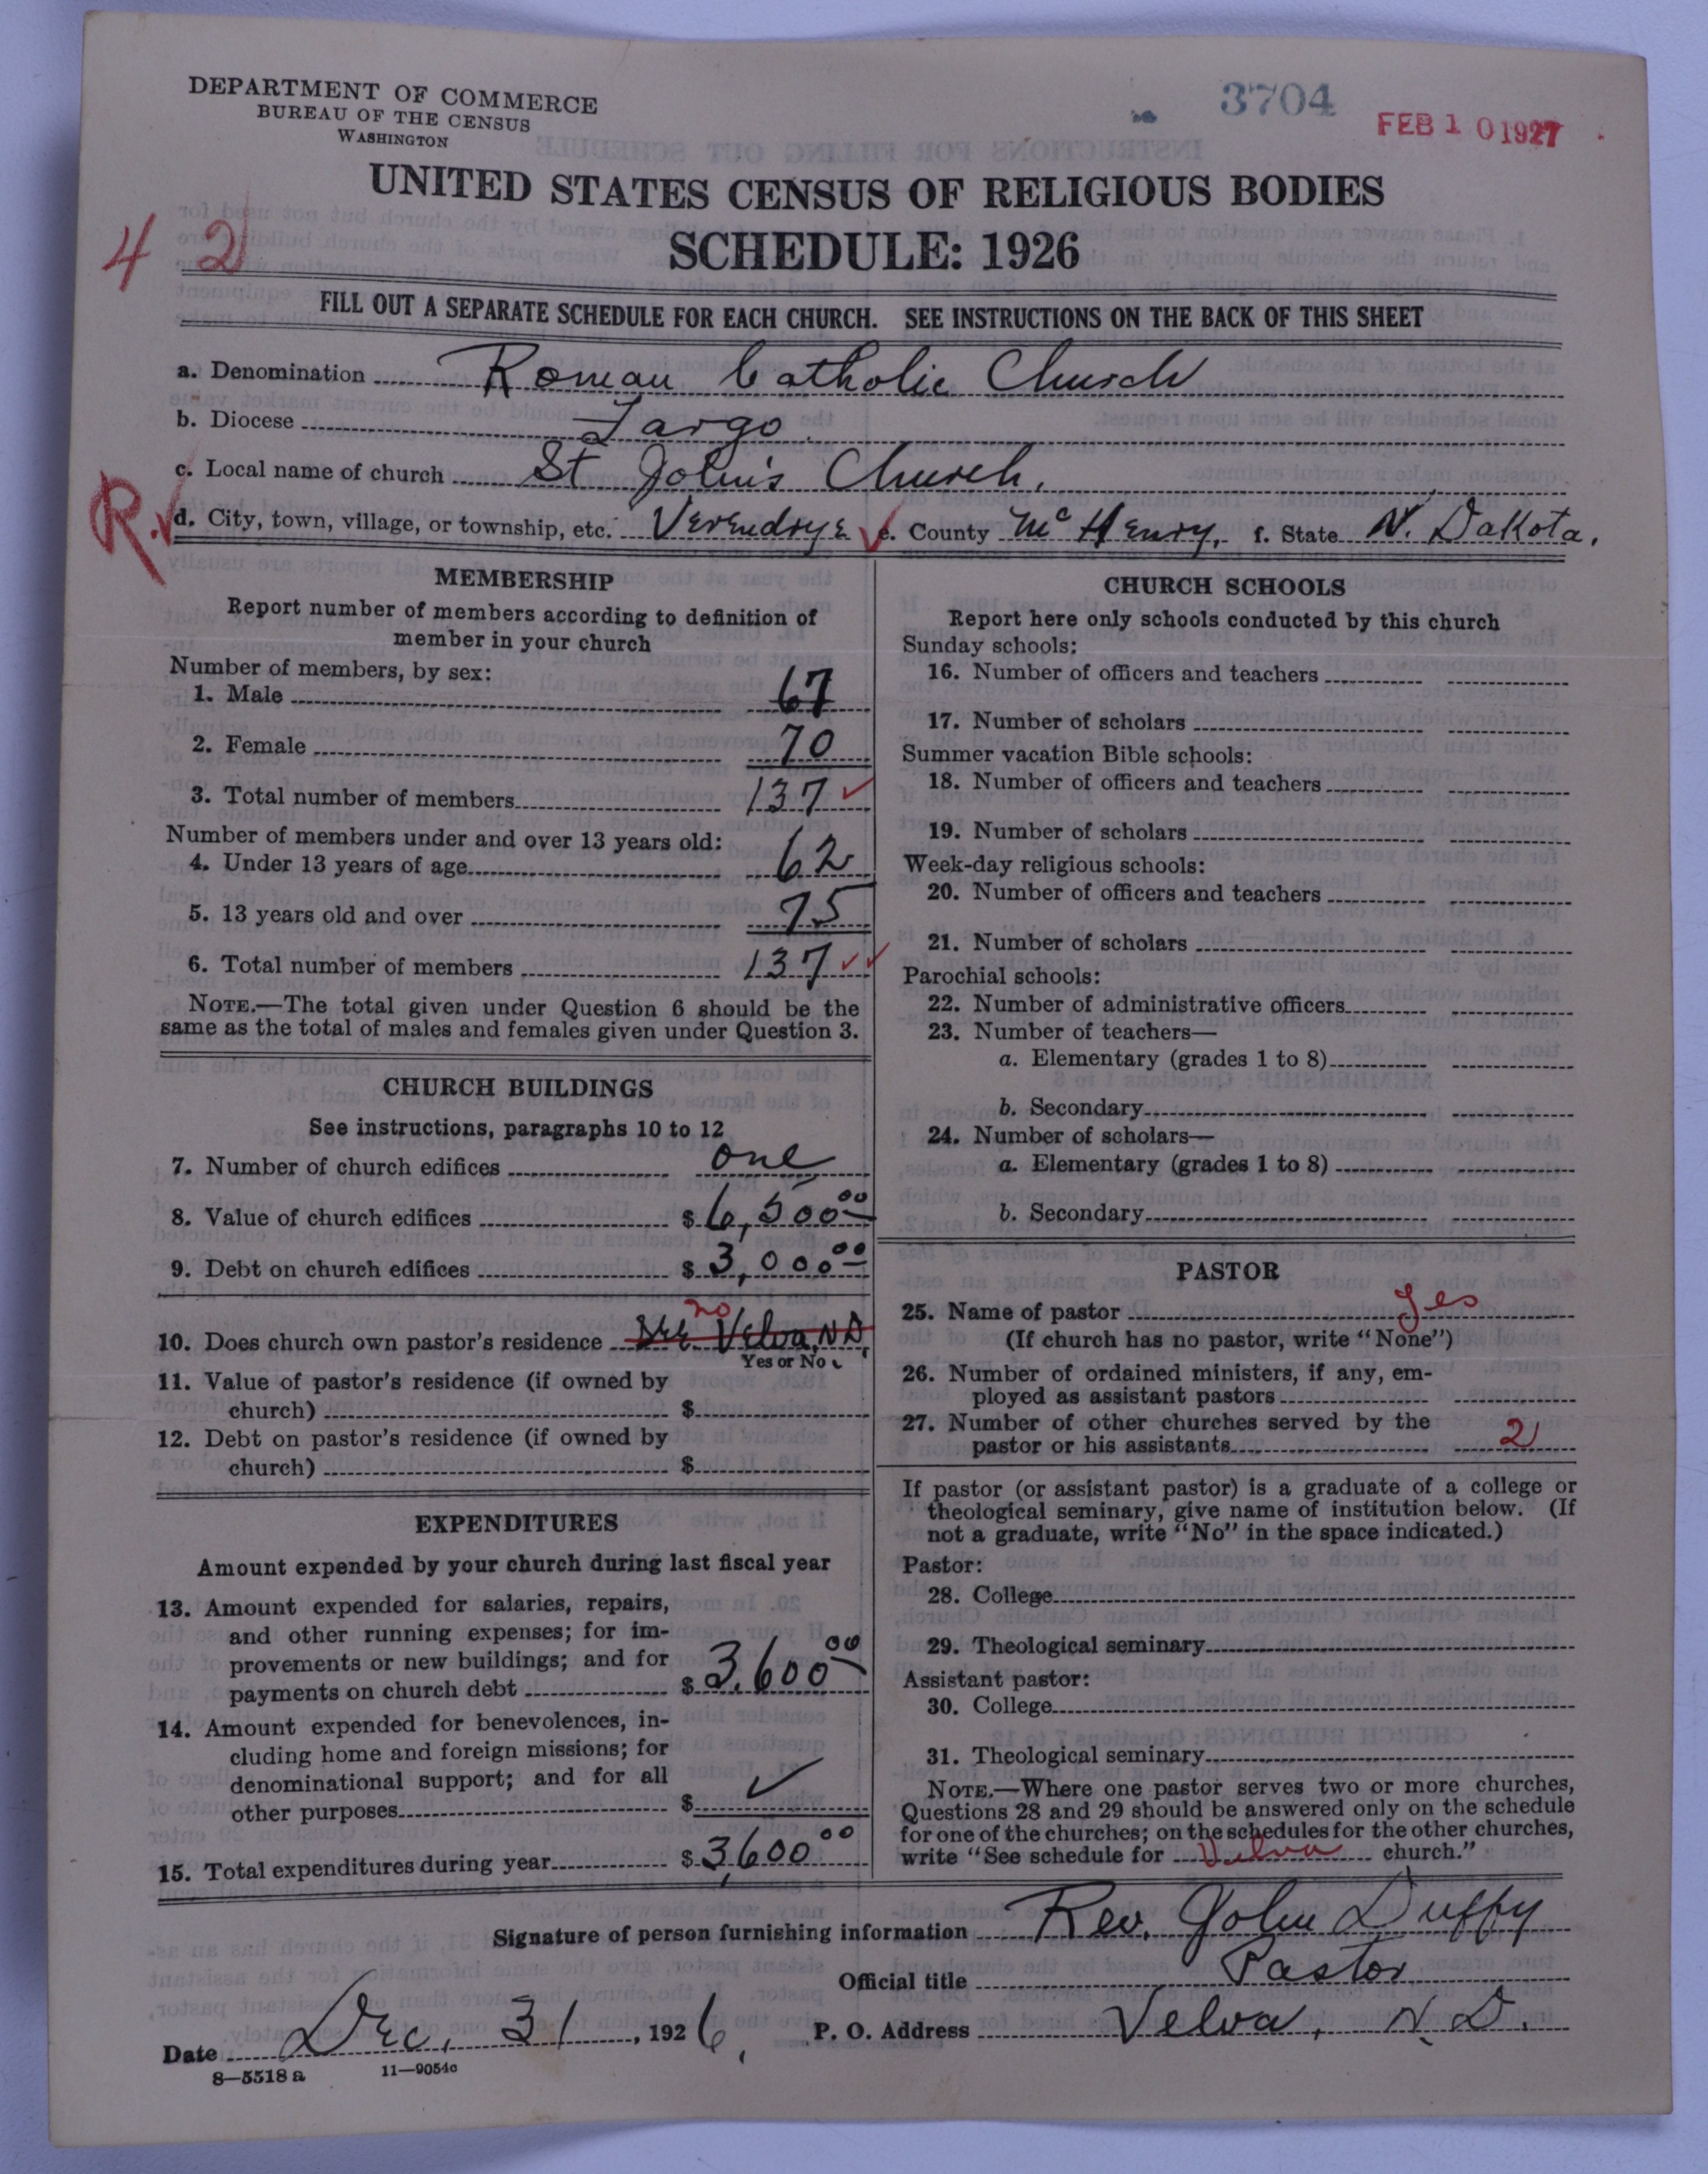 DEPARTMENT OF COMMERCE
BUREAU OF THE CENSUS
WASHINGTON
3704
FEB 10 1927
UNITED STATES CENSUS OF RELIGIOUS BODIES
SCHEDULE: 1926
4 2
FILL OUT A SEPARATE SCHEDULE FOR EACH CHURCH. SEE INSTRUCTIONS ON THE BACK OF THIS SHEET
a. Denomination Roman Catholic Church
b. Diocese Fargo
c. Local name of church St John's Church.
R. d. City, town, village, or township, etc. Verendrye e. County McHenry, f. State N. Dakota.
MEMBERSHIP
Report number of members according to definition of
member in your church
Number of members, by sex:
1. Male 67
2. Female 70
3. Total number of members 137 ✓
Number of members under and over 13 years old:
4. Under 13 years of age 62
5. 13 years old and over 75
6. Total number of members 137 ✓✓
NOTE.—The total given under Question 6 should be the
same as the total of males and females given under Question 3.
CHURCH BUILDINGS
See instructions, paragraphs 10 to 12
7. Number of church edifices one
8. Value of church edifices $ 6,500 00
9. Debt on church edifices $ 3,000 00
no
10. Does church own pastor's residence See Velva, N.D.
Yes or No
11. Value of pastor's residence (if owned by
church) $
12. Debt on pastor's residence (if owned by
church) $
EXPENDITURES
Amount expended by your church during last fiscal year
13. Amount expended for salaries, repairs,
and other running expenses; for im-
provements or new buildings; and for
payments on church debt $ 3,600 00
14. Amount expended for benevolences, in-
cluding home and foreign missions; for
denominational support; and for all
other purposes $ ✓
15. Total expenditures during year $ 3,600 00
CHURCH SCHOOLS
Report here only schools conducted by this church
Sunday schools:
16. Number of officers and teachers
17. Number of scholars
Summer vacation Bible schools:
18. Number of officers and teachers
19. Number of scholars
Week-day religious schools:
20. Number of officers and teachers
21. Number of scholars
Parochial schools:
22. Number of administrative officers
23. Number of teachers—
a. Elementary (grades 1 to 8)
b. Secondary
24. Number of scholars—
a. Elementary (grades 1 to 8)
b. Secondary
PASTOR
25. Name of pastor Yes
(If church has no pastor, write "None")
26. Number of ordained ministers, if any, em-
ployed as assistant pastors
27. Number of other churches served by the
pastor or his assistants 2
If pastor (or assistant pastor) is a graduate of a college or
theological seminary, give name of institution below. (If
not a graduate, write "No" in the space indicated.)
Pastor:
28. College
29. Theological seminary
Assistant pastor:
30. College
31. Theological seminary
NOTE.—Where one pastor serves two or more churches,
Questions 28 and 29 should be answered only on the schedule
for one of the churches; on the schedules for the other churches,
write "See schedule for Velva church."
Signature of person furnishing information Rev. John Duffy
Official title Pastor
Date Dec. 31, 1926. P. O. Address Velva, N.D.
8—5518 a 11—9054c